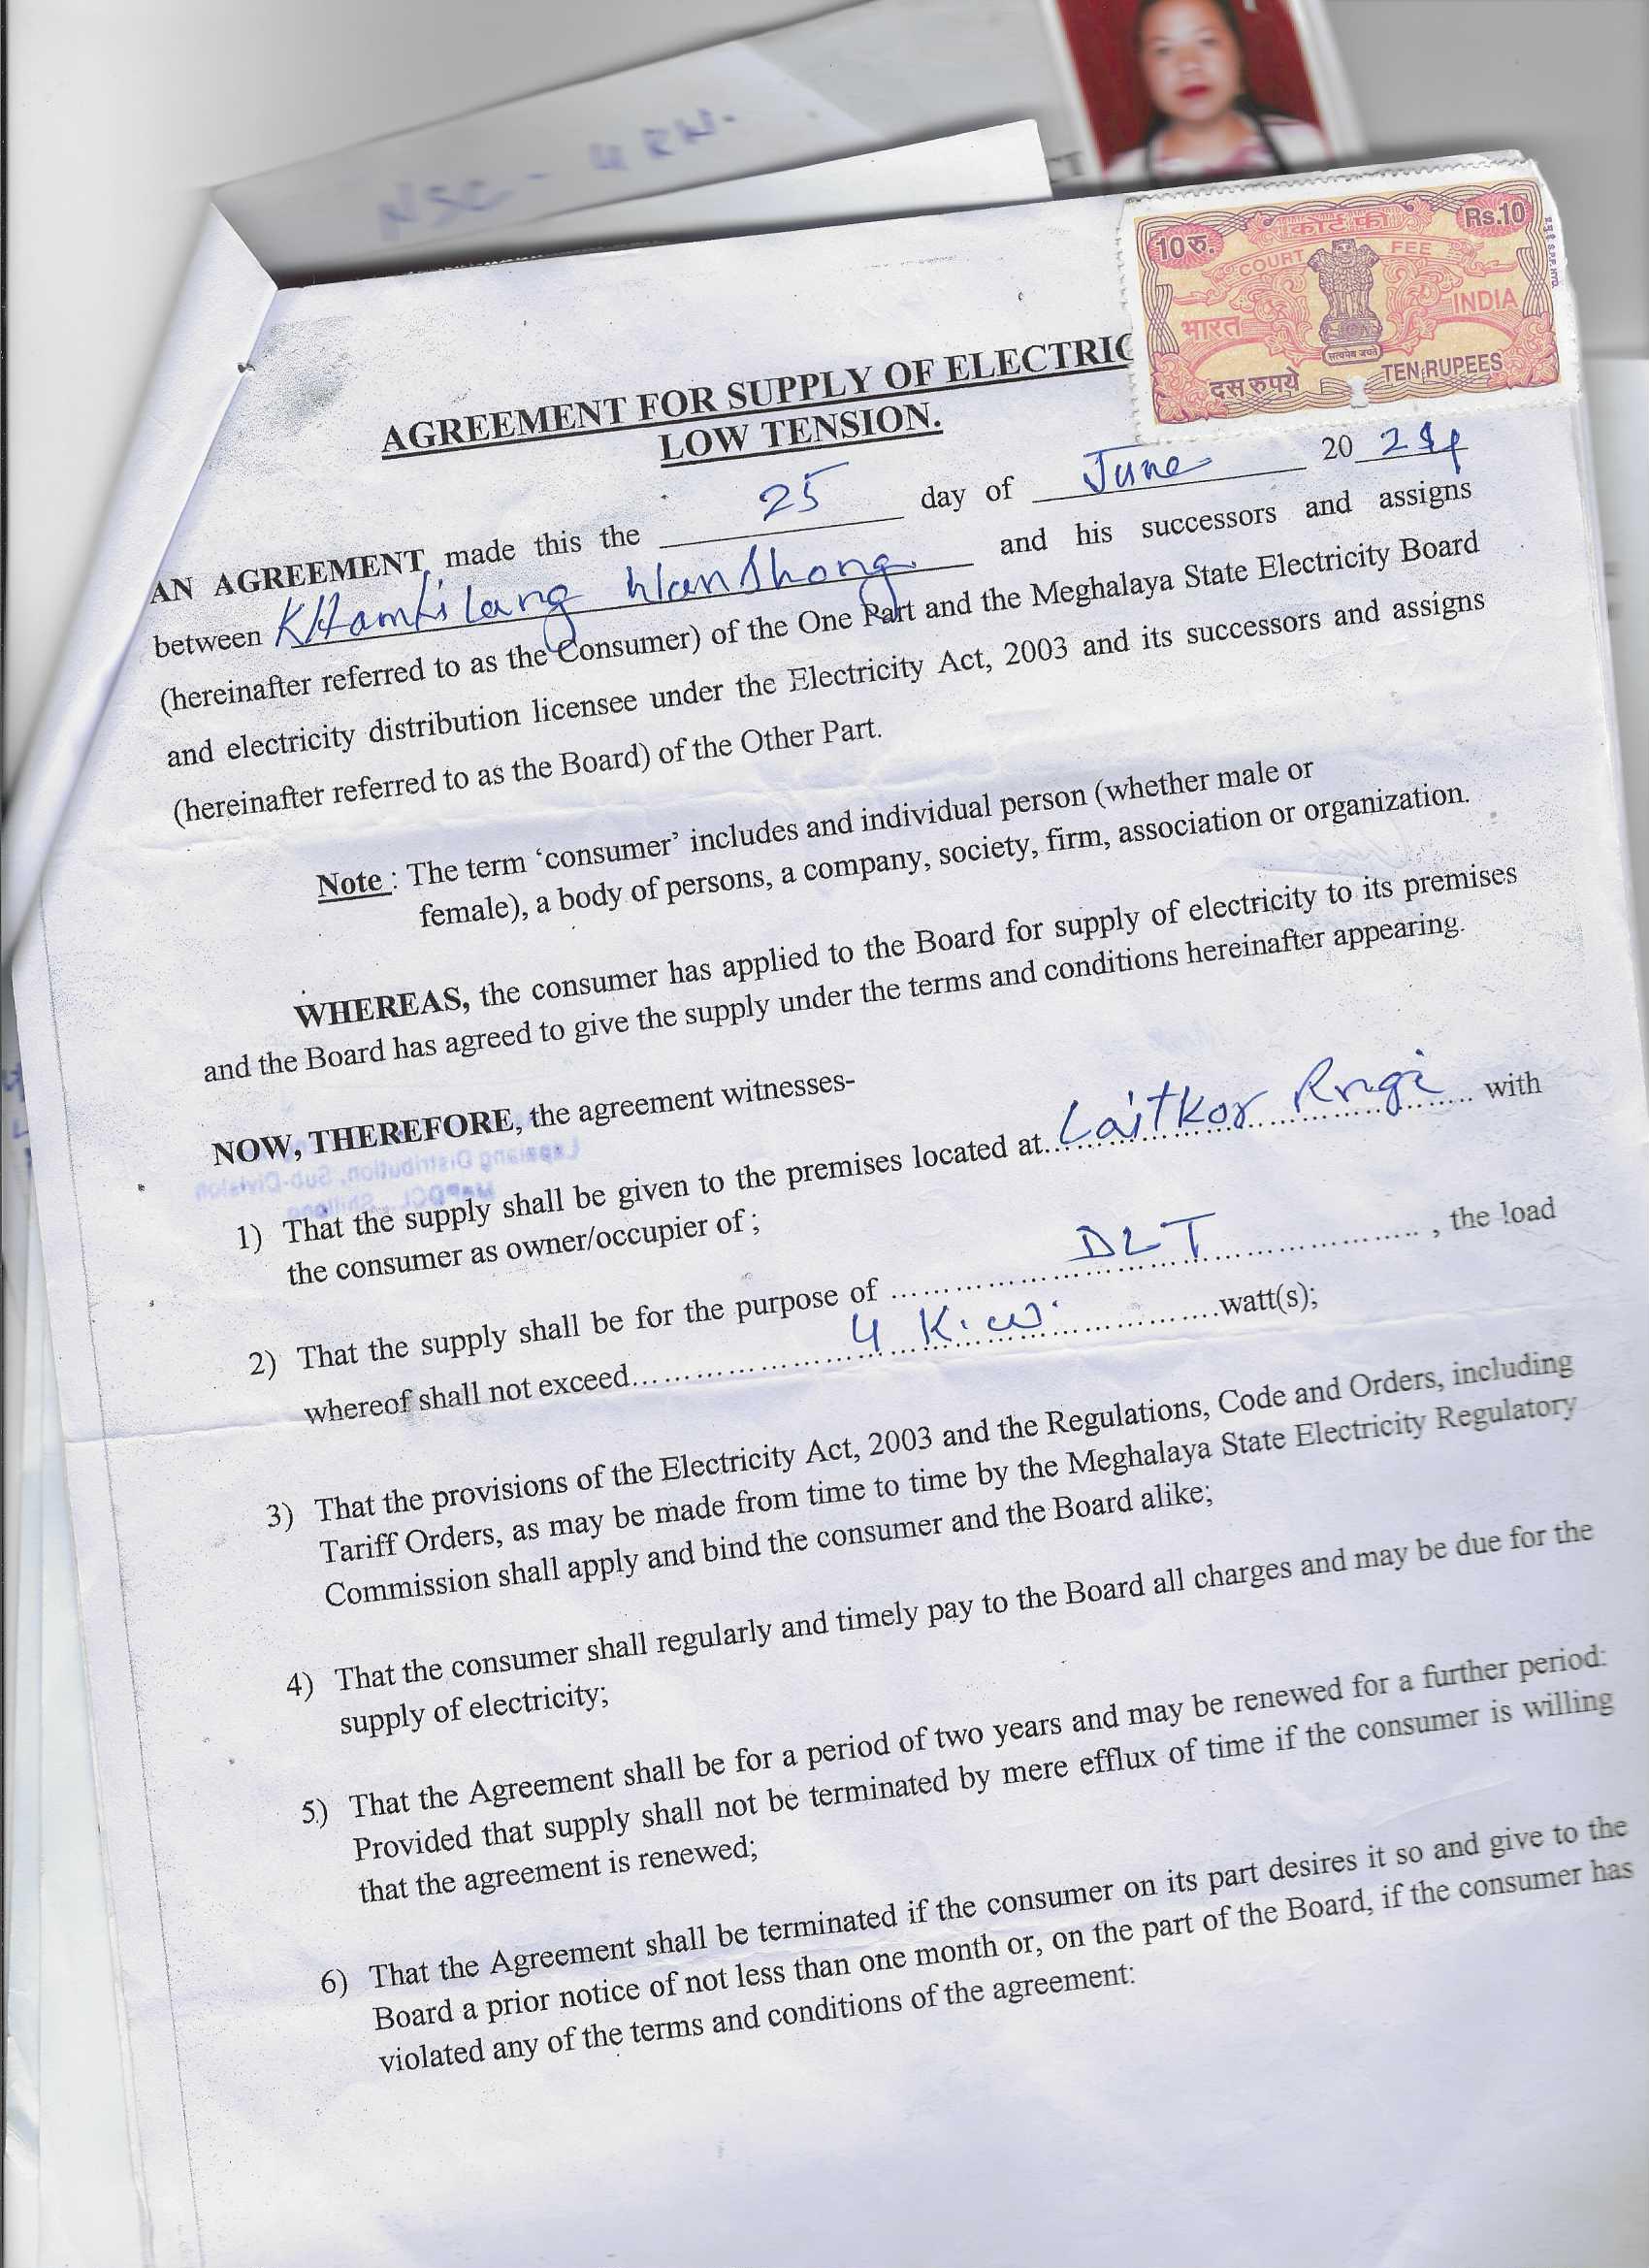 NSC - 4 KW.
CT
10रु. कोर्ट फी Rs.10
COURT FEE
भारत INDIA
सत्यमेव जयते
दस रुपये TEN RUPEES
AGREEMENT FOR SUPPLY OF ELECTRIC
LOW TENSION.
AN AGREEMENT made this the 25 day of June 20 24
between KHamti Lang Wanshong and his successors and assigns
(hereinafter referred to as the Consumer) of the One Part and the Meghalaya State Electricity Board
and electricity distribution licensee under the Electricity Act, 2003 and its successors and assigns
(hereinafter referred to as the Board) of the Other Part.
Note : The term ‘consumer’ includes and individual person (whether male or
female), a body of persons, a company, society, firm, association or organization.
WHEREAS, the consumer has applied to the Board for supply of electricity to its premises
and the Board has agreed to give the supply under the terms and conditions hereinafter appearing.
NOW, THEREFORE, the agreement witnesses-
1) That the supply shall be given to the premises located at... Laitkor Rngi ... with
the consumer as owner/occupier of ;
2) That the supply shall be for the purpose of ... DLT ... , the load
whereof shall not exceed... 4 K.W. ...watt(s);
3) That the provisions of the Electricity Act, 2003 and the Regulations, Code and Orders, including
Tariff Orders, as may be made from time to time by the Meghalaya State Electricity Regulatory
Commission shall apply and bind the consumer and the Board alike;
4) That the consumer shall regularly and timely pay to the Board all charges and may be due for the
supply of electricity;
5) That the Agreement shall be for a period of two years and may be renewed for a further period:
Provided that supply shall not be terminated by mere efflux of time if the consumer is willing
that the agreement is renewed;
6) That the Agreement shall be terminated if the consumer on its part desires it so and give to the
Board a prior notice of not less than one month or, on the part of the Board, if the consumer has
violated any of the terms and conditions of the agreement: